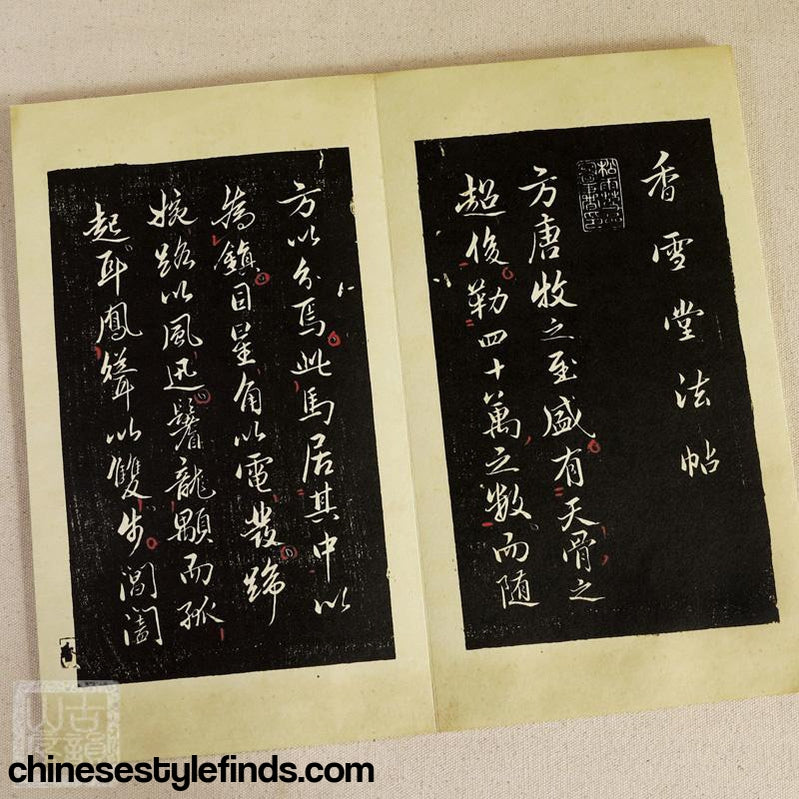 香雪堂法帖
方唐牧之至盛有天骨之
超俊勒四十萬之數而随
方以分焉此馬居其中以
為鎮目星角以電發蹄
椀踣以風迅鬐龍顒而孤
起耳鳳聳以雙步閶闔
chinesestylefinds.com